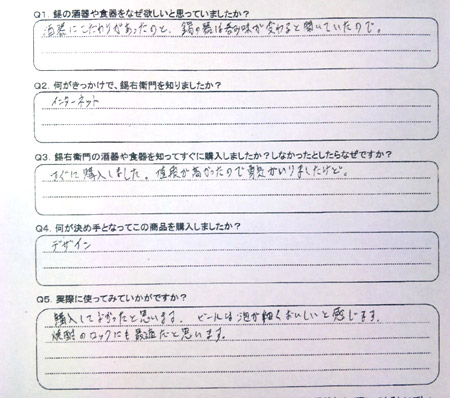 Q1. 錫の酒器や食器をなぜ欲しいと思っていましたか?
酒器にこだわりがあったのと、錫の器は呑み味が変わると聞いていたので。
Q2. 何がきっかけで、錫右衛門を知りましたか?
インターネット
Q3. 錫右衛門の酒器や食器を知ってすぐに購入しましたか?しなかったとしたらなぜですか?
すぐに購入しました。値段が高かったので勇気がいりましたけど。
Q4. 何が決め手となってこの商品を購入しましたか?
デザイン
Q5. 実際に使ってみていかがですか?
購入してよかったと思います。ビールは泡が細くおいしいと感じます。
焼酎のロックにも最適だと思います。